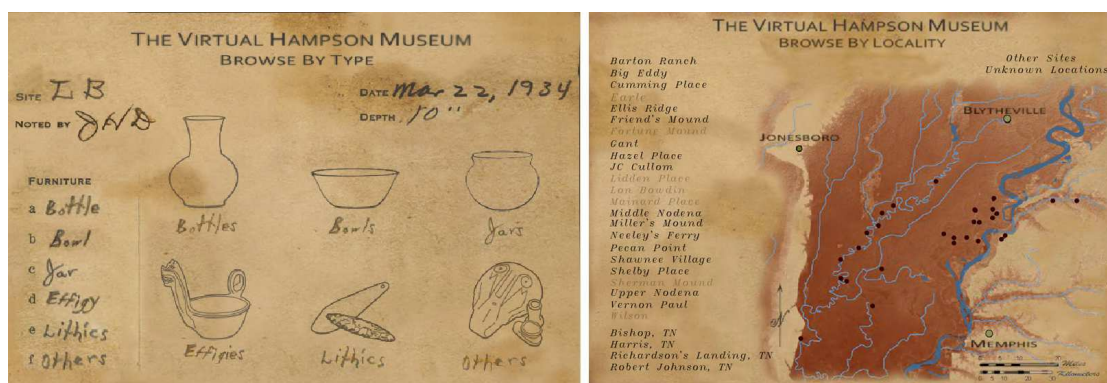 THE VIRTUAL HAMPSON MUSEUM
BROWSE BY TYPE
SITE I B
DATE Mar 22, 1934
NOTED BY JHD
DEPTH 10"
FURNITURE
a Bottle
b Bowl
c Jar
d Effigy
e Lithics
f Others
Bottles
Bowls
Jars
Effigies
Lithics
Others
THE VIRTUAL HAMPSON MUSEUM
BROWSE BY LOCALITY
Barton Ranch
Big Eddy
Cumming Place
Earle
Ellis Ridge
Friend's Mound
Fortune Mound
Gant
Hazel Place
JC Cullom
Lidden Place
Lon Dowdin
Mainard Place
Middle Nodena
Miller's Mound
Neeley's Ferry
Pecan Point
Shawnee Village
Shelby Place
Sherman Mound
Upper Nodena
Vernon Paul
Wilson
Bishop, TN
Harris, TN
Richardson's Landing, TN
Robert Johnson, TN
Other Sites
Unknown Locations
BLYTHEVILLE
JONESBORO
MEMPHIS
Miles
Kilometers